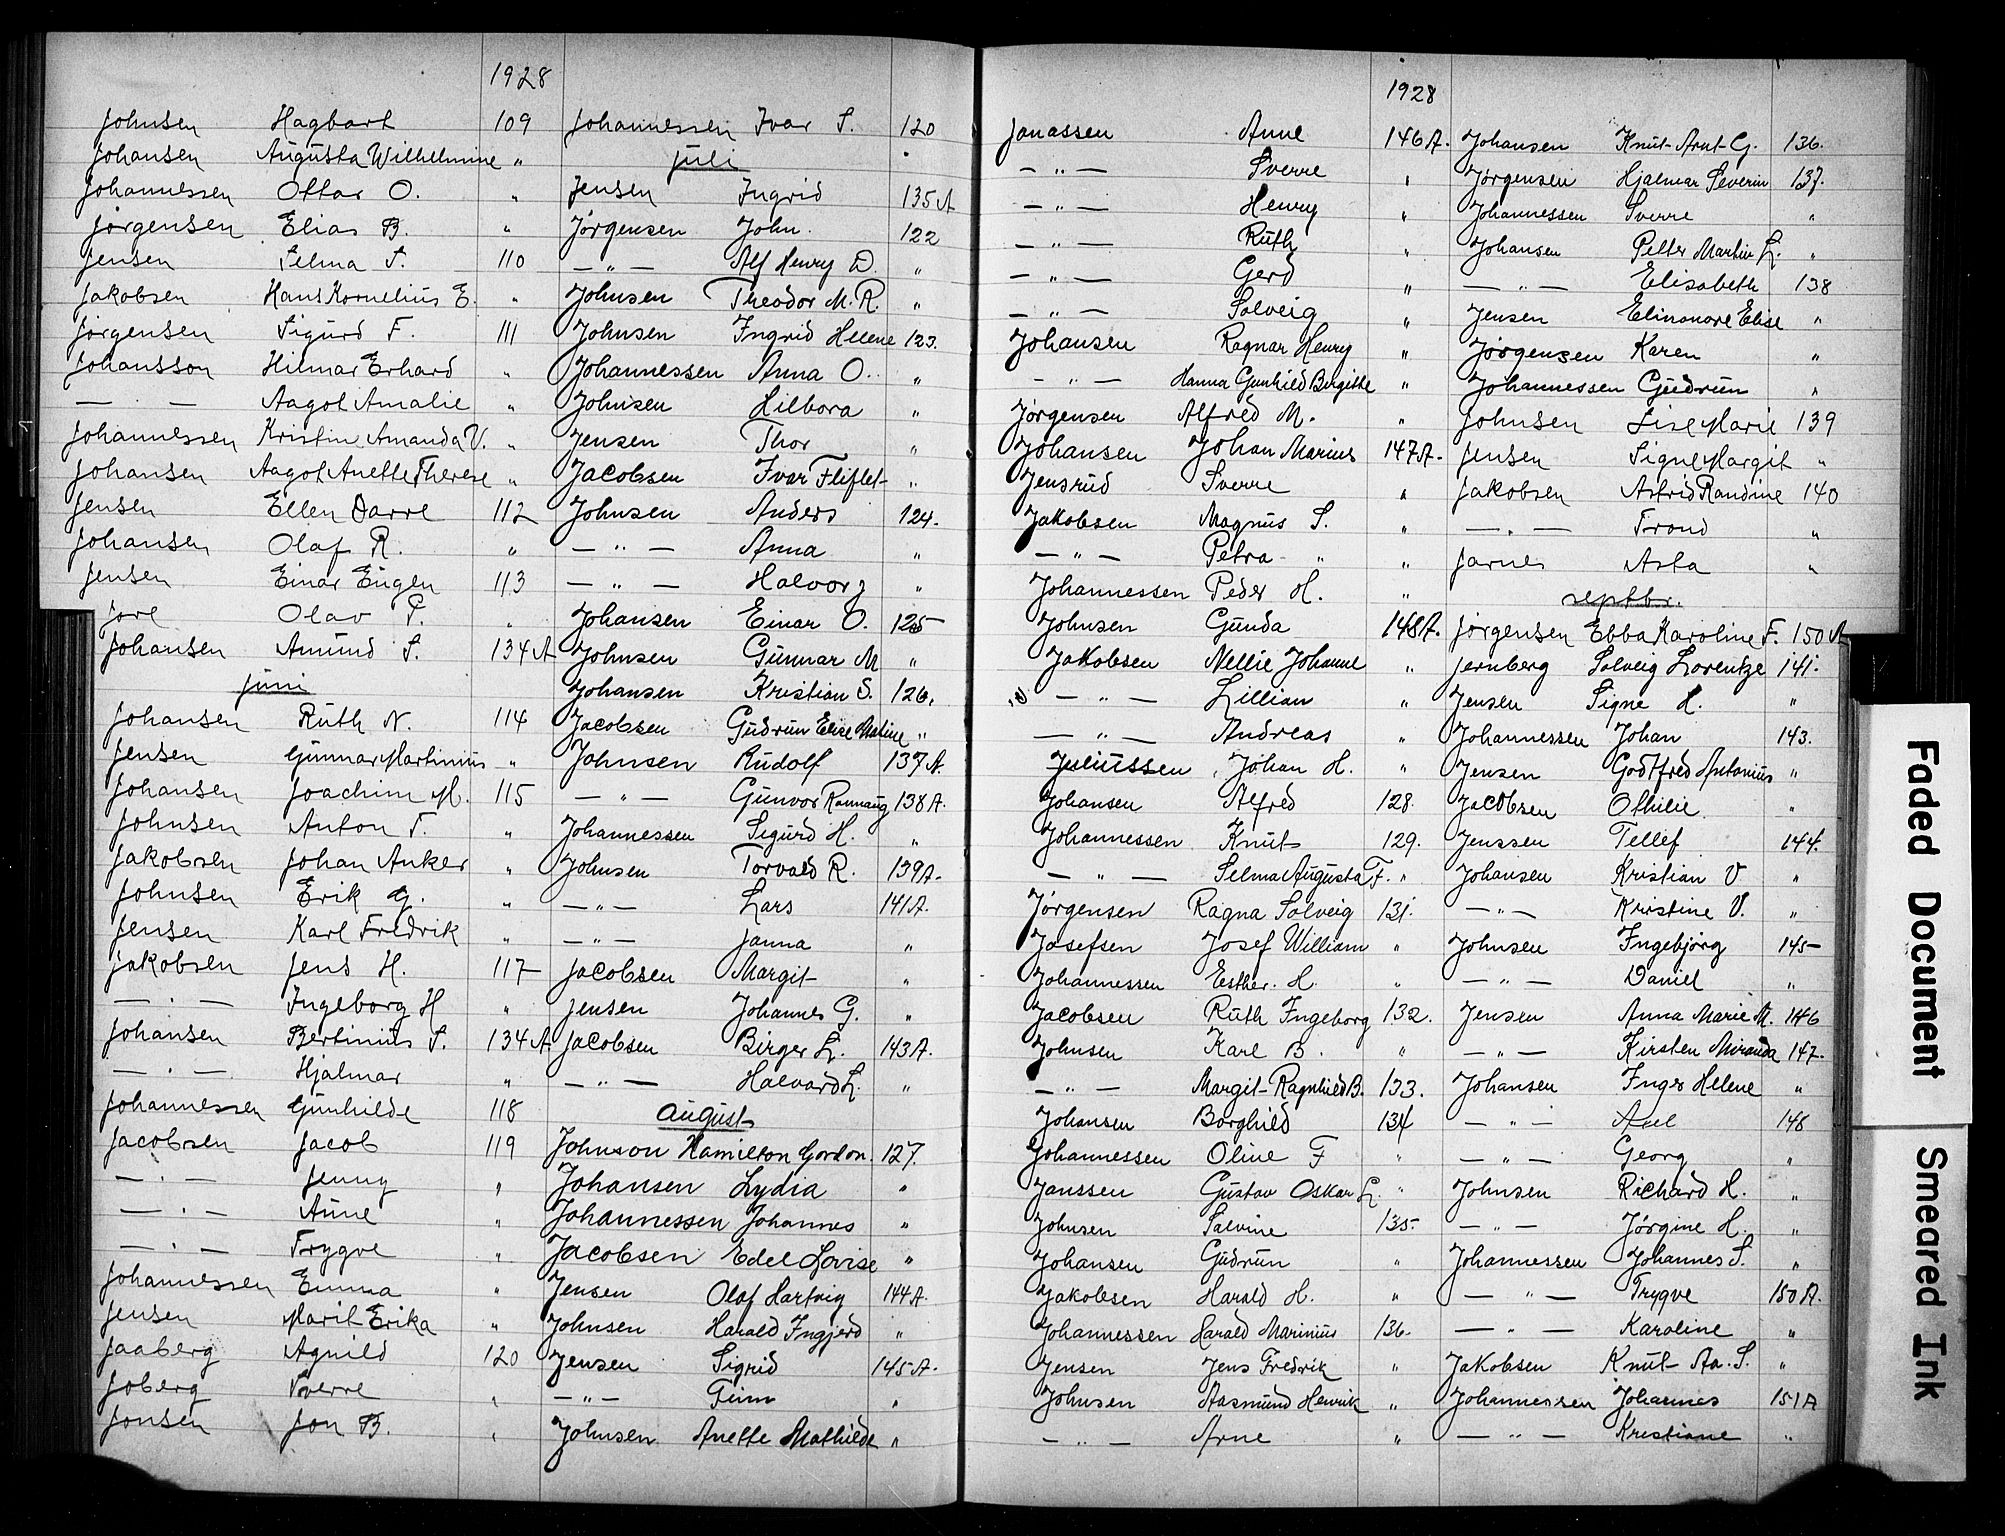 1928
Johnsen Hagbart 109
Johansen Augusta Wilhelmine "
Johannessen Ottar O. "
Jørgensen Elias B. "
Jensen Selma S. 110
Jakobsen Hans Kornelius E. "
Jørgensen Sigurd F. 111
Johansson Hilmar Erhard "
— " — Aagot Amalie "
Johannessen Kristin Amanda V. "
Johansen Aagot Anette Therese "
Jensen Ellen Darre 112
Johansen Olaf R. "
Jensen Einar Eugen 113
Jore Olav P. "
Johansen Amund S. 134 A
juni
Johansen Ruth N. 114
Jensen Gunnar Martinius "
Johansen Joachim M. 115
Johnsen Anton T. "
Jakobsen Johan Anker "
Johnsen Erik G. "
Jensen Karl Fredrik "
Jakobsen Jens H. 117
— " — Ingeborg H "
Johansen Bertinius S. 134 A
— " — Hjalmar "
Johannessen Gunhilde 118
Jacobsen Jacob 119
— " — Jenny "
— " — Anne "
— " — Trygve "
Johannessen Emma "
Jensen Marit Erika "
Jaaberg Agnild 120
Joberg Sverre "
Jonsen Jon B. "
Johannessen Ivar S. 120
juli
Jensen Ingrid 135 A
Jørgensen John. 122
— " — Alf Henry D. "
Johnsen Theodor M. R. "
Johnsen Ingrid Helene 123.
Johannessen Anna O. "
Johnsen Hilbora "
Jensen Thor "
Jacobsen Ivar Fliflet "
Johnsen Anders 124.
— " — Anna "
— " — Halvor J "
Johansen Einar O. 125
Johnsen Gunnar M "
Johansen Kristian S. 126.
Jacobsen Gudrun Elise Matine "
Johnsen Rudolf 137 A.
— " — Gunvor Rannaug 138 A.
Johannessen Sigurd H. "
Johnsen Torvald R. 139 A.
— " — Lars 141 A.
— " — Janna "
Jacobsen Margit "
Jensen Johannes G. "
Jacobsen Birger L. 143 A.
— " — Halvard L. "
August
Johnson Hamilton Gordon. 127.
Johansen Lydia "
Johannessen Johannes "
Jacobsen Edel Lovise "
Jensen Olaf Hartvig 144 A.
Johnsen Harald Ingjerd "
Jensen Sigrid 145 A.
— " — Finn "
Johnsen Anette Mathilde "
1928
Jonassen Anne 146 A.
— " — Sverre "
— " — Henry "
— " — Ruth "
— " — Gerd "
— " — Solveig "
Johansen Ragnar Henry "
— " — Hanna Gunhild Birgitte "
Jørgensen Alfred M. "
Johansen Johan Marius 147 A.
Jensrud Sverre "
Jakobsen Magnus S. "
— " — Petra " "
Johannessen Peder H. "
Johnsen Gunda 148 A.
Jakobsen Nellie Johanne "
— " — Lillian "
— " — Andreas "
Juliussen Johan H. "
Johansen Alfred 128.
Johannessen Knut 129.
— " — Selma Augusta F. "
Jørgensen Ragna Solveig 131.
Josefsen Josef William "
Johannessen Esther. H. "
Jacobsen Ruth Ingeborg 132.
Johnsen Karl B. "
— " — Margit Ragnhild B. 133.
Johansen Borghild 134
Johannessen Oline F "
Janssen Gustav Oskar L. "
Johnsen Salvine 135
Johansen Gudrun "
Jakobsen Harald H. "
Johannessen Harald Marinius 136.
Jensen Jens Fredrik "
Johnsen Aasmund Henrik "
— " — Arne "
Johansen Knut Arnt G. 136.
Jørgensen Hjalmar Severin 137.
Johannessen Sverre "
Johansen Petter Martin L. "
— " — Elisabeth 138
Jensen Elinonore Elise "
Jørgensen Karen "
Johannessen Gudrun "
Johnsen Lise Marie 139
Jensen Signe Margit "
Jakobsen Astrid Randine 140
— " — Trond "
Jarnes Asta "
septbr.
Jørgensen Ebba Karoline F. 150 A
Jernberg Solveig Lorentze 141.
Jensen Signe H. "
Johannessen Johan 143.
Jensen Godtfred Antonius "
Jacobsen Othilie "
Jenssen Tellef 144.
Johansen Kristian V "
— " — Kristine V. "
Johnsen Ingebjørg 145
— " — Daniel "
Jensen Anna Marie M. 146
— " — Kirsten Miranda 147.
Johansen Inger Helene "
— " — Axel 148
— " — Georg "
Johnsen Richard H. "
— " — Jørgine H. "
Johannessen Johannes S. "
— " — Trygve 150 A.
— " — Karoline "
Jakobsen Knut Aa. S. "
Johannessen Johannes 151 A
— " — Kristiane "
Faded Document
Smeared Ink